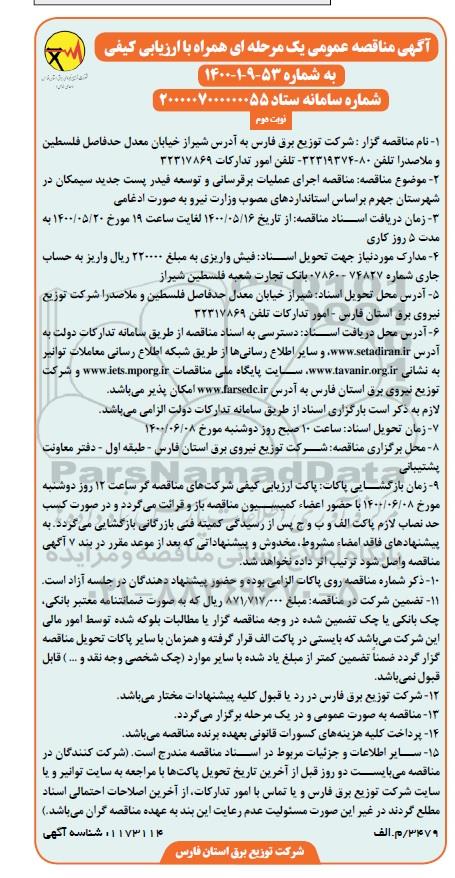 آگهی مناقصه عمومی یک مرحله ای همراه با ارزیابی کیفی
به شماره ۵۳-۹-۱-۱۴۰۰
شماره سامانه ستاد ۲۰۰۰۰۰۷۰۰۰۰۰۰۰۵۵
نوبت دوم
۱- نام مناقصه گزار : شرکت توزیع برق فارس به آدرس شیراز خیابان معدل حدفاصل فلسطین
و ملاصدرا تلفن ۸۰-۳۲۳۱۹۳۷۴- تلفن امور تدارکات ۳۲۳۱۷۸۶۹
۲- موضوع مناقصه: مناقصه اجرای عملیات برقرسانی و توسعه فیدر پست جدید سیمکان در
شهرستان جهرم براساس استانداردهای مصوب وزارت نیرو به صورت ادغامی
۳- زمان دریافت اســـناد مناقصه: از تاریخ ۱۴۰۰/۰۵/۱۶ لغایت ساعت ۱۹ مورخ ۱۴۰۰/۰۵/۲۰ به
مدت ۵ روز کاری
۴- مدارک موردنیاز جهت تحویل اســـناد: فیش واریزی به مبلغ ۲۲۰۰۰۰ ریال واریز به حساب
جاری شماره ۷۴۸۲۷ - ۰۷۸۶۰ بانک تجارت شعبه فلسطین شیراز
۵- آدرس محل تحویل اسناد: شیراز خیابان معدل حدفاصل فلسطین و ملاصدرا شرکت توزیع
نیروی برق استان فارس - امور تدارکات تلفن ۳۲۳۱۷۸۶۹
۶- آدرس محل دریافت اســـناد: دسترسی به اسناد مناقصه از طریق سامانه تدارکات دولت به
آدرس www.setadiran.ir، و سایر اطلاع رسانی‌ها از طریق شبکه اطلاع رسانی معاملات توانیر
به نشانی www.tavanir.org.ir، ســـایت پایگاه ملی مناقصات www.iets.mporg.ir و شرکت
توزیع نیروی برق استان فارس به آدرس www.farsedc.ir امکان پذیر می‌باشد.
لازم به ذکر است بارگزاری اسناد از طریق سامانه تدارکات دولت الزامی می‌باشد.
۷- زمان تحویل اسناد: ساعت ۱۰ صبح روز دوشنبه مورخ ۱۴۰۰/۰۶/۰۸
۸- محل برگزاری مناقصه: شـــرکت توزیع نیروی برق استان فارس - طبقه اول - دفتر معاونت
پشتیبانی
۹- زمان بازگشـــایی پاکات: پاکت ارزیابی کیفی شرکت‌های مناقصه گر ساعت ۱۲ روز دوشنبه
مورخ ۱۴۰۰/۰۶/۰۸ با حضور اعضاء کمیســـیون مناقصه باز و قرائت می‌گردد و در صورت کسب
حد نصاب لازم پاکت الف و ب و ج پس از رسیدگی کمیته فنی بازرگانی بازگشایی می‌گردد. به
پیشنهادهای فاقد امضاء مشروط، مخدوش و پیشنهاداتی که بعد از موعد مقرر در بند ۷ آگهی
مناقصه واصل شود ترتیب اثر داده نخواهد شد.
۱۰- ذکر شماره مناقصه روی پاکات الزامی بوده و حضور پیشنهاد دهندگان در جلسه آزاد است.
۱۱- تضمین شرکت در مناقصه: مبلغ ۸۷۱/۷۱۷/۰۰۰ ریال که به صورت ضمانتنامه معتبر بانکی،
چک بانکی یا چک تضمین شده در وجه مناقصه گزار یا مطالبات بلوکه شده توسط امور مالی
این شرکت می‌باشد که بایستی در پاکت الف قرار گرفته و همزمان با سایر پاکات تحویل مناقصه
گزار گردد ضمناً تضمین کمتر از مبلغ یاد شده با سایر موارد (چک شخصی وجه نقد و ... ) قابل
قبول نمی‌باشد.
۱۲- شرکت توزیع برق فارس در رد یا قبول کلیه پیشنهادات مختار می‌باشد.
۱۳- مناقصه به صورت عمومی و در یک مرحله برگزار می‌گردد.
۱۴- پرداخت کلیه هزینه‌های کسورات قانونی بعهده برنده مناقصه می‌باشد.
۱۵- ســـایر اطلاعات و جزئیات مربوط در اســـناد مناقصه مندرج است. (شرکت کنندگان در
مناقصه می‌بایســـت دو روز قبل از آخرین تاریخ تحویل پاکت‌ها با مراجعه به سایت توانیر و یا
سایت شرکت توزیع برق فارس و یا تماس با امور تدارکات، از آخرین اصلاحات احتمالی اسناد
مطلع گردند در غیر این صورت مسئولیت عدم رعایت این بند به عهده مناقصه گران می‌باشد.)
۳۴۷۹/م.الف ۱۱۷۳۱۱۴: شناسه آگهی
شرکت توزیع برق استان فارس